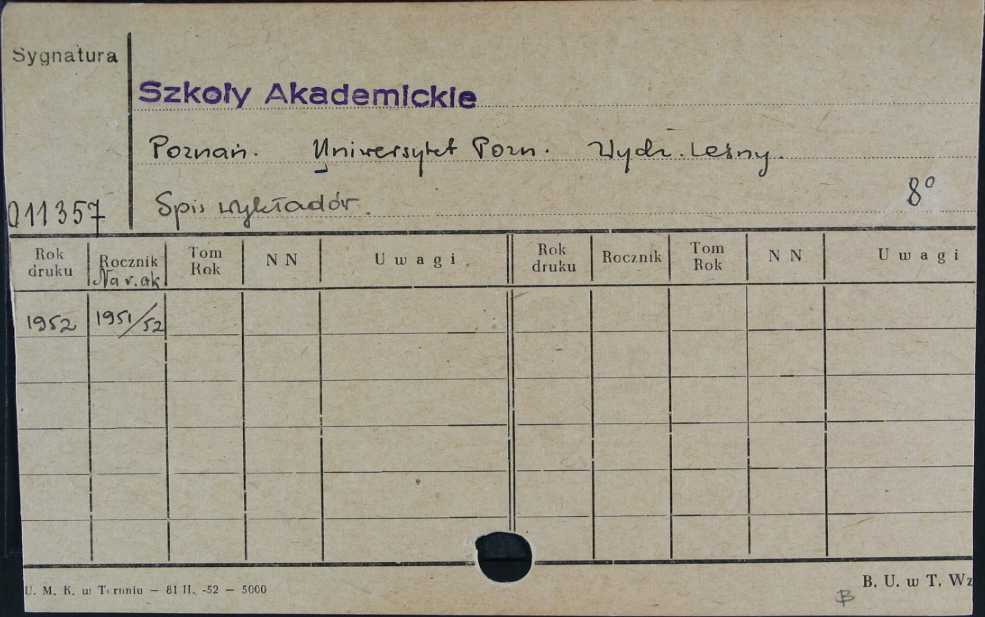 Sygnatura
Szkoły Akademickie
Poznań. Uniwersytet Pozn. Wydz. Leśny.
Spis wykładów. 8°
011357
Rok druku Rocznik Tom Rok N N Uwagi Rok druku Rocznik Tom Rok N N Uwagi
Na r. ak
1952 1951/52
U. M. K. w Toruniu — 81 II. -52 — 5000
B. U. w T. Wz
B